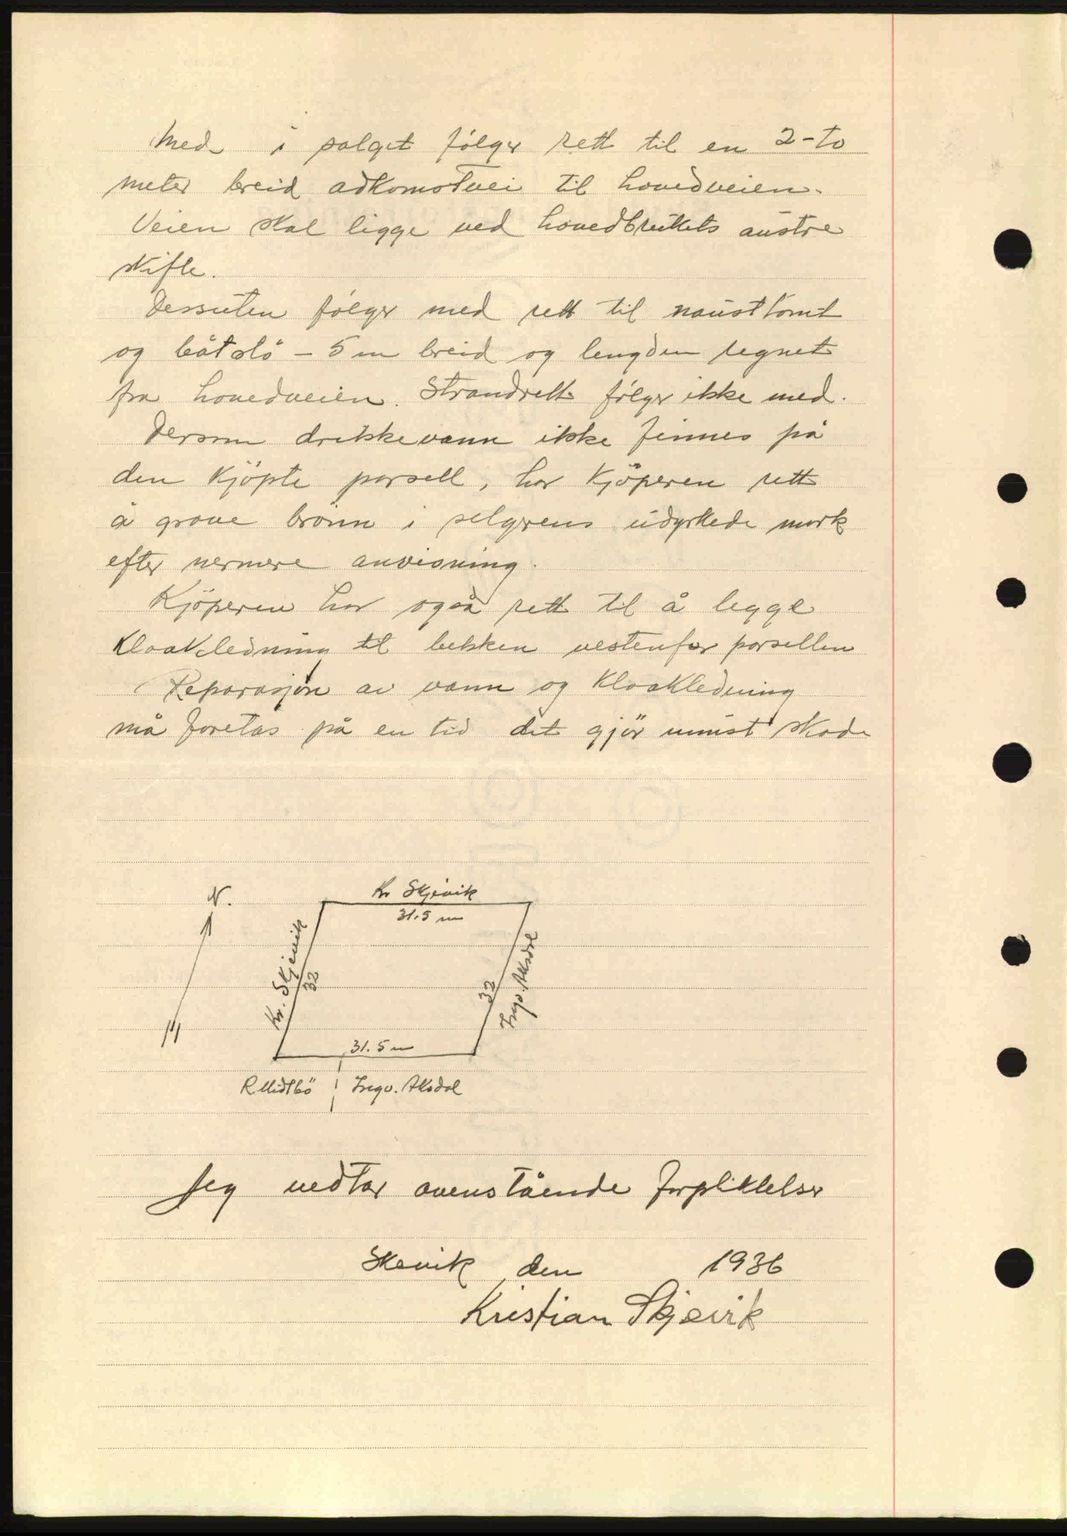 Med i salget følger rett til en 2-to
meter breid adkomstvei til hovedveien.
Veien skal ligge ved hovedbrukets austre
skifte.
Dessuten følger med rett til nausttomt
og båtstø - 5 m breid og lengden regnet
fra hovedveien. Strandrett følger ikke med.
Dersom drikkevann ikke finnes på
den kjöpte parsell, har kjöperen rett
å grave brönn i selgerens udyrkede mark
efter nermere anvisning.
Kjöperen har også rett til å legge
kloakledning til bekken vestenfor parsellen
Reparasjon av vann og kloakledning
må foretas på en tid det gjör minst skade
N.
Kr Skjevik
31.5 m
Kr. Skjevik
32
32
Ingv. Aksdal
31.5 m
R Midtbö
Ingv. Aksdal
Jeg vedtar ovenstående forpliktelser
Skevik den 1936
Kristian Skjevik